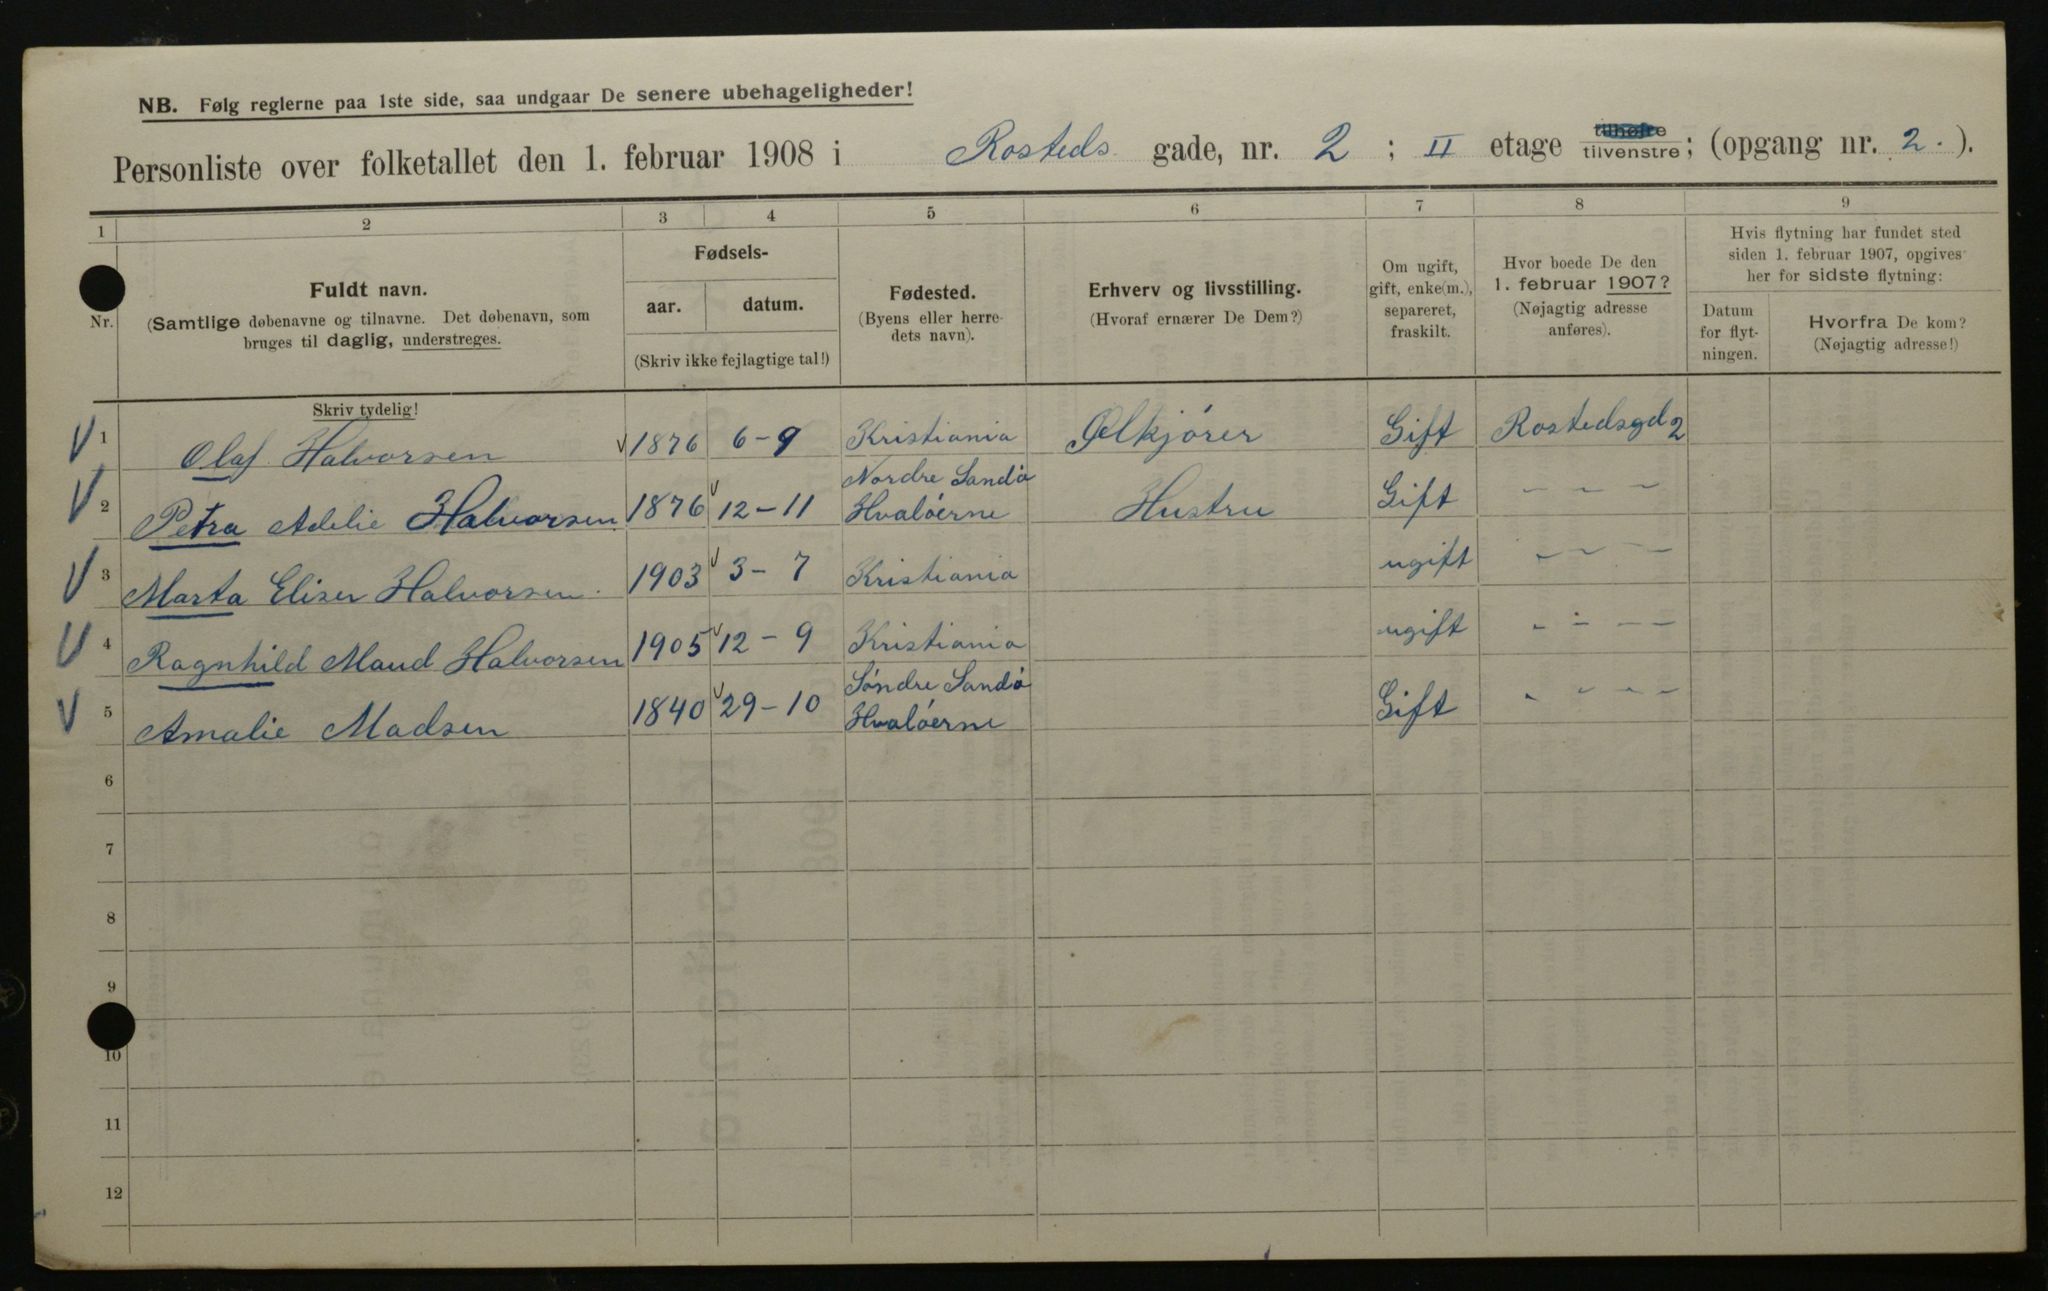 NB. Følg reglerne paa 1ste side, saa undgaar De senere ubehageligheder!
Personliste over folketallet den 1. februar 1908 i Rosteds gade, nr. 2 ; II etage tilhøire tilvenstre; (opgang nr. 2. ).
1 2 3 4 5 6 7 8 9
Nr.
Fuldt navn.
(Samtlige døbenavne og tilnavne. Det døbenavn, som
bruges til daglig, understreges.
Skriv tydelig!
Fødsels-
aar. datum.
(Skriv ikke fejlagtige tal!)
Fødested.
(Byens eller herre-
dets navn).
Erhverv og livsstilling.
(Hvoraf ernærer De Dem?)
Om ugift,
gift, enke(m.),
separeret,
fraskilt.
Hvor boede De den
1. februar 1907?
(Nøjagtig adresse
anføres).
Hvis flytning har fundet sted
siden 1. februar 1907, opgives
her for sidste flytning:
Datum
for flyt-
ningen.
Hvorfra De kom?
(Nøjagtig adresse!)
1 Olaf Halvorsen 1876 6-9 Kristiania Ølkjörer Gift Rostedsgd 2
2 Petra Adelie Halvorsen 1876 12-11 Nordre Sandö Hvalöerne Hustru Gift - - -
3 Marta Eliser Halvorsen 1903 3-7 Kristiania ugift - - -
4 Ragnhild Maud Halvorsen 1905 12-9 Kristiania ugift - - - -
5 Amalie Madsen 1840 29-10 Söndre Sandö Hvalöerne Gift - - - -
6
7
8
9
10
11
12